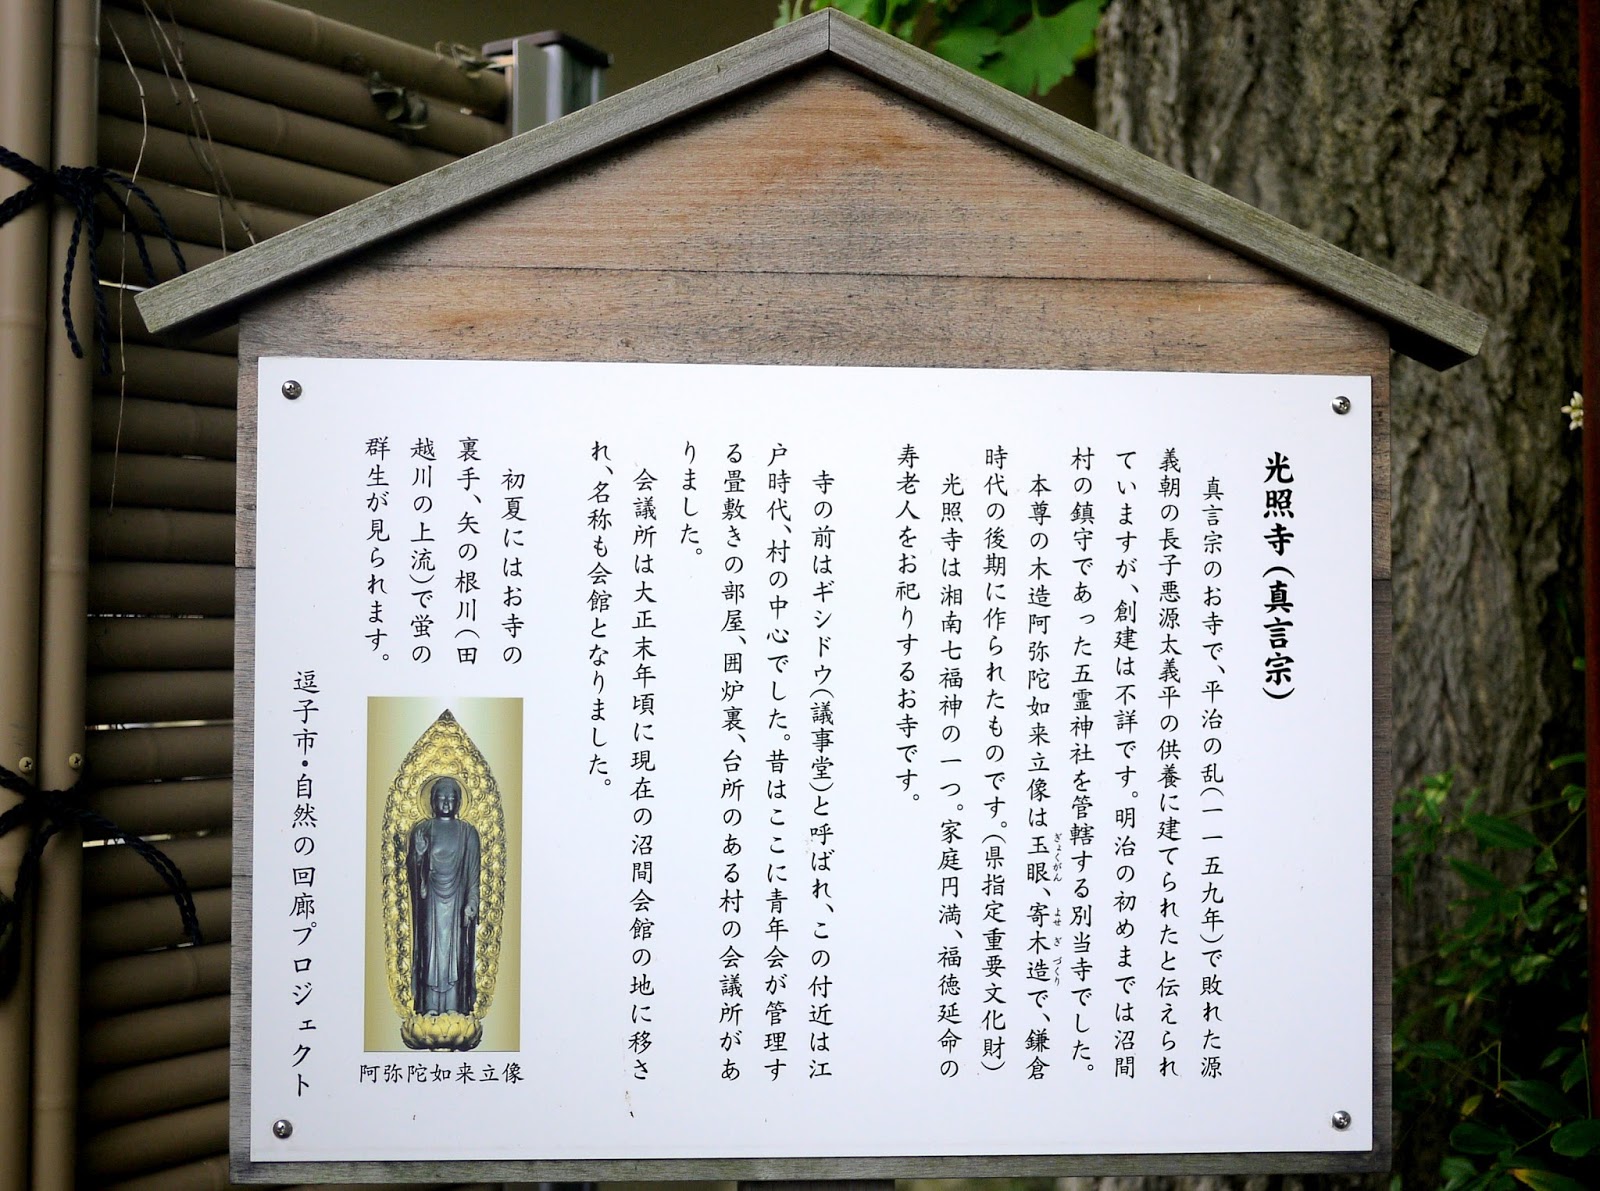 光照寺(真言宗)
真言宗のお寺で、平治の乱(一一五九年)で敗れた源
義朝の長子悪源太義平の供養に建てられたと伝えられ
ていますが、創建は不詳です。明治の初めまでは沼間
村の鎮守であった五霊神社を管轄する別当寺でした。
本尊の木造阿弥陀如来立像は玉眼、寄木造で、鎌倉
ぎょくがん
よせぎづくり
時代の後期に作られたものです。(県指定重要文化財)
光照寺は湘南七福神の一つ。家庭円満、福徳延命の
寿老人をお祀りするお寺です。
寺の前はギシドウ(議事堂)と呼ばれ、この付近は江
戸時代、村の中心でした。昔はここに青年会が管理す
る畳敷きの部屋、囲炉裏、台所のある村の会議所があ
りました。
会議所は大正末年頃に現在の沼間会館の地に移さ
れ、名称も会館となりました。
初夏にはお寺の
裏手、矢の根川(田
越川の上流)で蛍の
群生が見られます。
阿弥陀如来立像
逗子市・自然の回廊プロジェクト